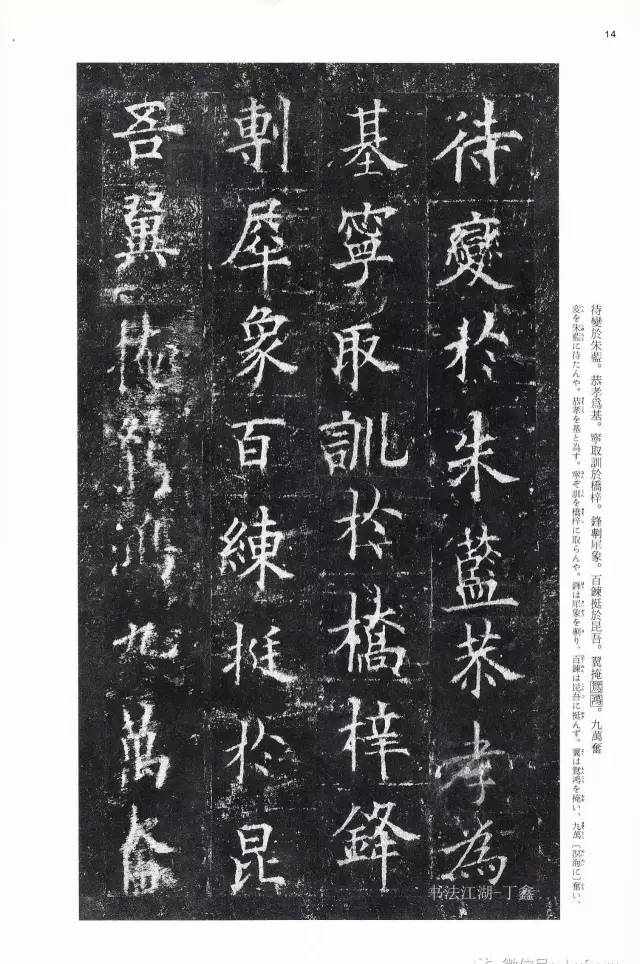 14
待變於朱藍恭孝為
基寧取訓於橋梓鋒
剸犀象百練挺於昆
吾翼掩鵷鴻九萬奮
待變於朱藍。恭孝爲基。寧取訓於橋梓。鋒剸犀象。百鍊挺於昆吾。翼掩鵷鴻。九萬奮
変を朱藍に待たんや。恭孝を基と為す。寧ぞ訓を橋梓に取らんや。鋒は犀象を剸り、百鍊は昆吾に挺んず。翼は鵷鴻を掩い、九萬〔溟海に〕奮い、
书法江湖-丁鑫